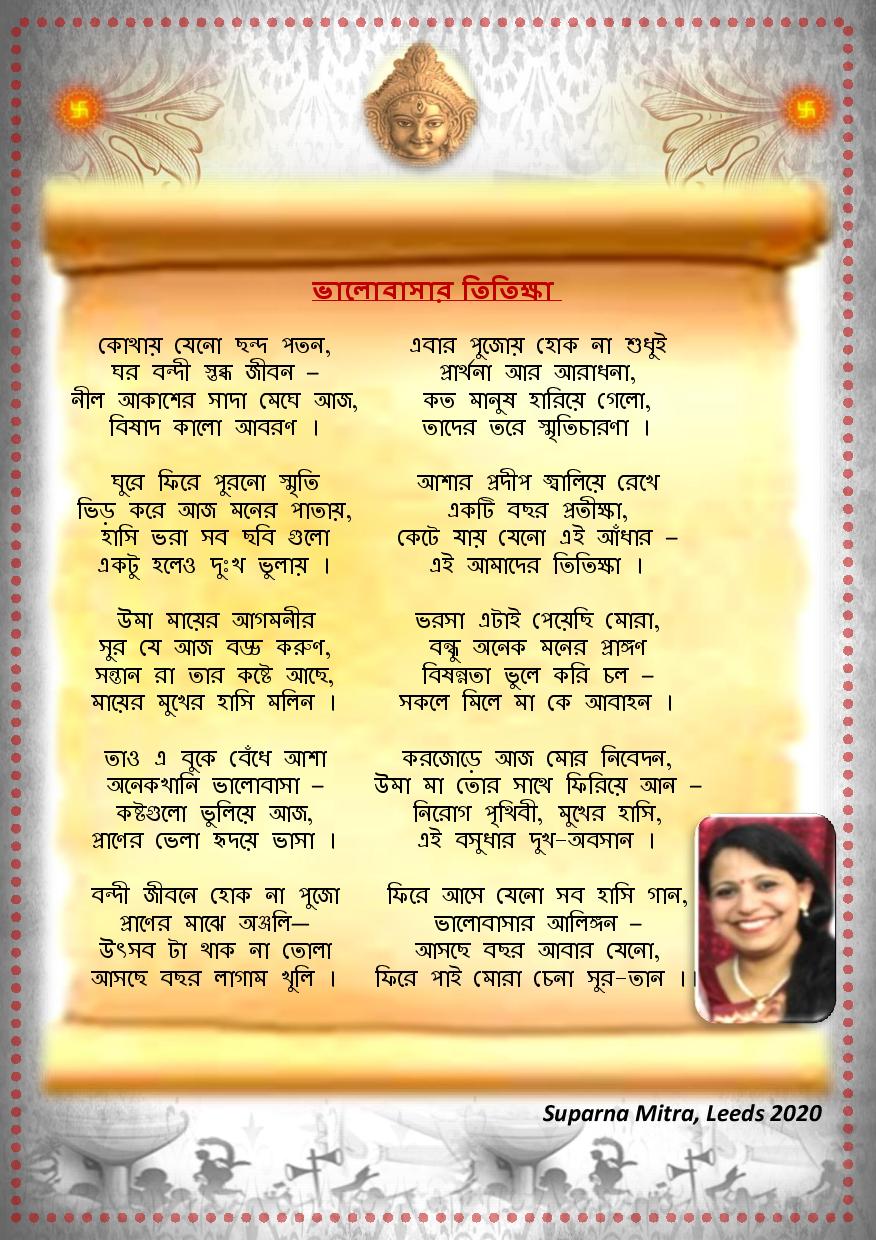 ভালোবাসার তিতিক্ষা
কোথায় যেনো ছন্দ পতন,
ঘর বন্দী স্তব্ধ জীবন –
নীল আকাশের সাদা মেঘে আজ,
বিষাদ কালো আবরণ ।
ঘুরে ফিরে পুরনো স্মৃতি
ভিড় করে আজ মনের পাতায়,
হাসি ভরা সব ছবি গুলো
একটু হলেও দুঃখ ভুলায় ।
উমা মায়ের আগমনীর
সুর যে আজ বড্ড করুণ,
সন্তান রা তার কষ্টে আছে,
মায়ের মুখের হাসি মলিন ।
তাও এ বুকে বেঁধে আশা
অনেকখানি ভালোবাসা –
কষ্টগুলো ভুলিয়ে আজ,
প্রাণের ভেলা হৃদয়ে ভাসা ।
বন্দী জীবনে হোক না পুজো
প্রাণের মাঝে অঞ্জলি—
উৎসব টা থাক না তোলা
আসছে বছর লাগাম খুলি ।
এবার পুজোয় হোক না শুধুই
প্রার্থনা আর আরাধনা,
কত মানুষ হারিয়ে গেলো,
তাদের তরে স্মৃতিচারণা ।
আশার প্রদীপ জ্বালিয়ে রেখে
একটি বছর প্রতীক্ষা,
কেটে যায় যেনো এই আঁধার –
এই আমাদের তিতিক্ষা ।
ভরসা এটাই পেয়েছি মোরা,
বন্ধু অনেক মনের প্রাঙ্গণ
বিষন্নতা ভুলে করি চল –
সকলে মিলে মা কে আবাহন ।
করজোড়ে আজ মোর নিবেদন,
উমা মা তোর সাথে ফিরিয়ে আন –
নিরোগ পৃথিবী, মুখের হাসি,
এই বসুধার দুখ-অবসান ।
ফিরে আসে যেনো সব হাসি গান,
ভালোবাসার আলিঙ্গন –
আসছে বছর আবার যেনো,
ফিরে পাই মোরা চেনা সুর-তান ।।
Suparna Mitra, Leeds 2020